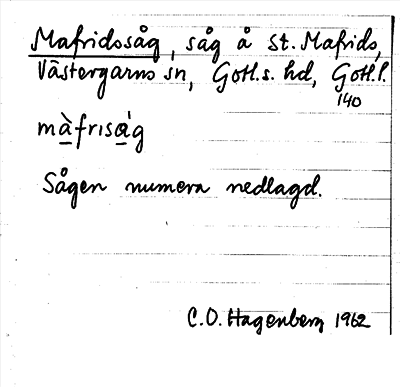 Mafridssåg, såg å St. Mafrids,
Västergarns sn, Gotl. s. hd, Gotl. l.
140
mà̲frisȧ̲g
Sågen numera nedlagd.
C.O. Hagenberg 1962